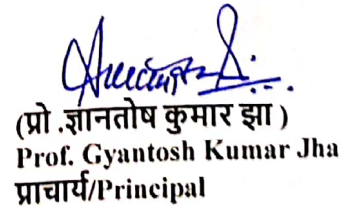 (प्रो .ज्ञानतोष कुमार झा )
Prof. Gyantosh Kumar Jha
प्राचार्य/Principal